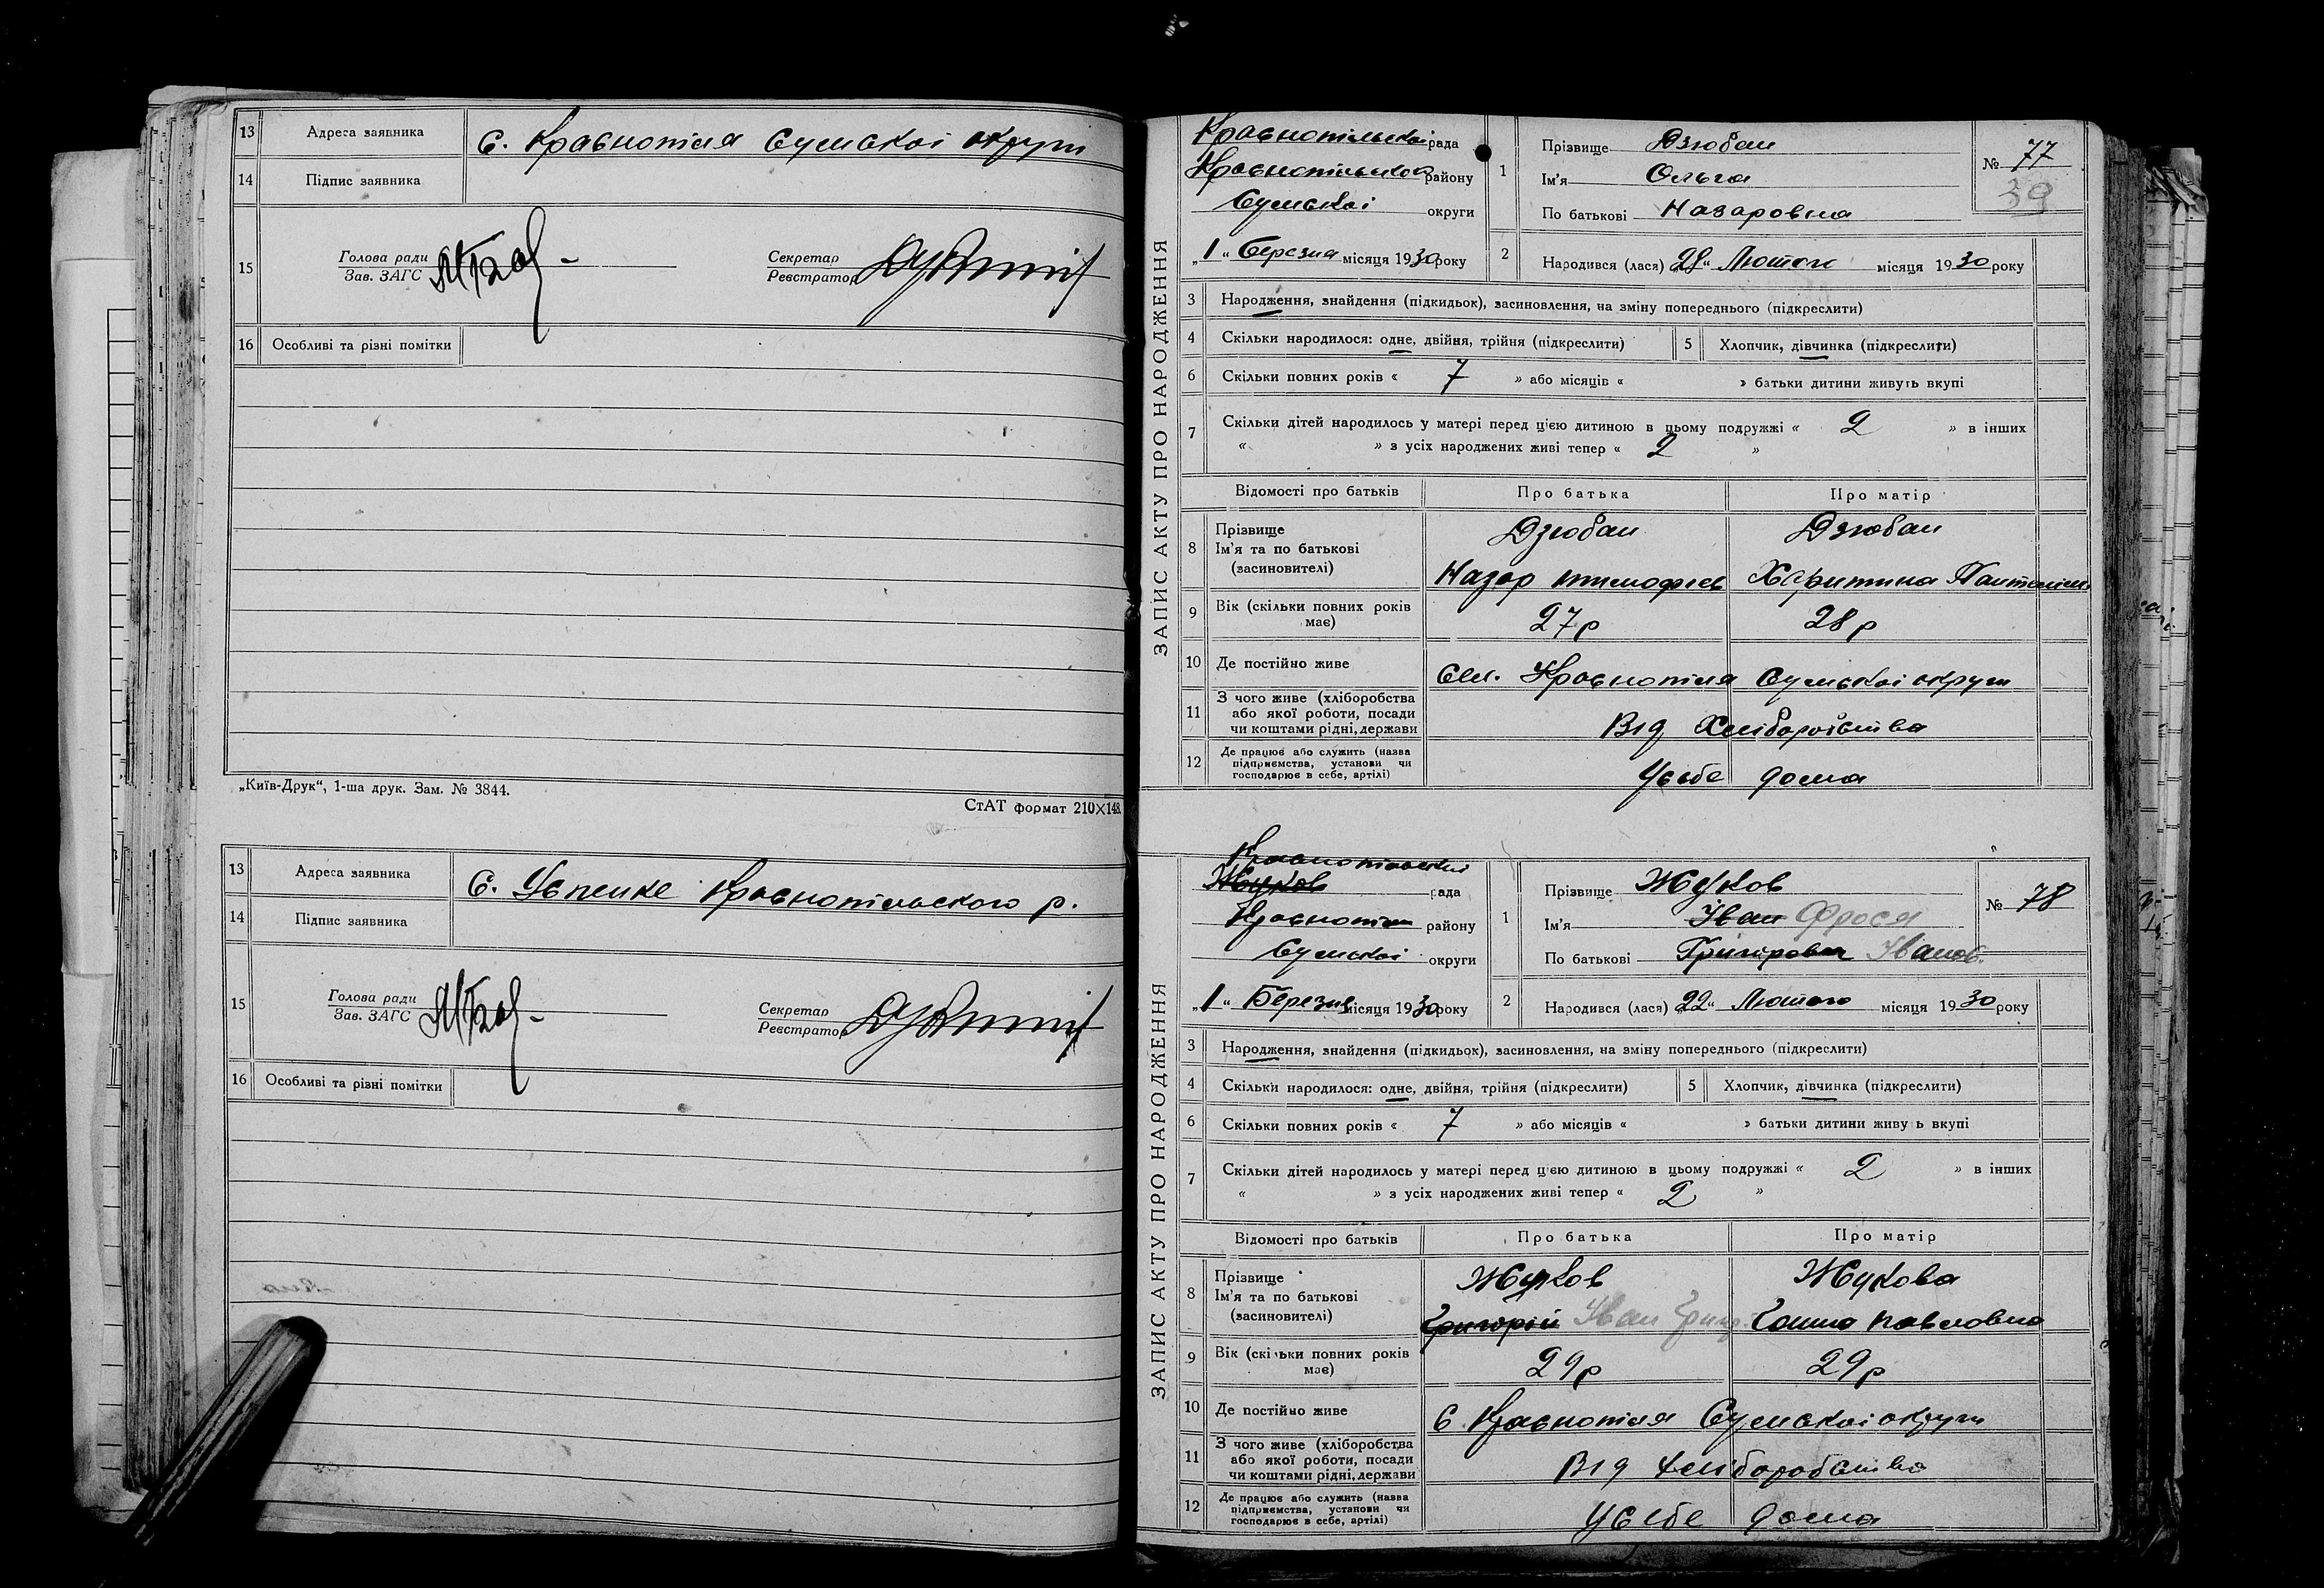 13 Адреса заявника С. Краснопілля Сумської округи
14 Підпис заявника
15 Голова ради
Зав. ЗАГС
Секретар
Реєстратор
16 Особливі та різні помітки
„Київ-Друк“, 1-ша друк. Зам. № 3844.
СтАТ формат 210×148
13 Адреса заявника С. Успенке Краснопільского р.
14 Підпис заявника
15 Голова ради
Зав. ЗАГС
Секретар
Реєстратор
16 Особливі та різні помітки
ЗАПИС АКТУ ПРО НАРОДЖЕННЯ
Краснопільскоі рада
Краснопільского району
Сумскоі округи
„1“ Березня місяця 1930 року
1 Прізвище Дзюбан
Ім'я Ольга
По батькові Назаровна
№ 77
39
2 Народився (лася) „28“ Лютого місяця 1930 року
3 Народження, знайдення (підкидьок), засиновлення, на зміну попереднього (підкреслити)
4 Скільки народилося: одне, двійня, трійня (підкреслити) 5 Хлопчик, дівчинка (підкреслити)
6 Скільки повних років « 7 » або місяців « » батьки дитини живуть вкупі
7 Скільки дітей народилось у матері перед цією дитиною в цьому подружжі « 2 » в інших
« » з усіх народжених живі тепер « 2 »
Відомості про батьків Про батька Про матір
8 Прізвище Дзюбан Дзюбан
Ім'я та по батькові
(засиновителі) Назар тимофієв Харитина
9 Вік (скільки повних років має) 27 р 28 р
10 Де постійно живе Сел. Краснопілля Сумскоі округи
11 З чого живе (хліборобства
або якої роботи, посади
чи коштами рідні, держави Від Хліборобства
12 Де працює або служить (назва
підприємства, установи чи
господарює в себе, артілі) Усебе дома
ЗАПИС АКТУ ПРО НАРОДЖЕННЯ
Краснопільскоі
Жуков рада
Краснопіл району
Сумскоі округи
„1“ Березня місяця 1930 року
1 Прізвище Жуков
Ім'я Іван Фрося
По батькові Григорович Іванов.
№ 78
2 Народився (лася) „22“ Лютого місяця 1930 року
3 Народження, знайдення (підкидьок), засиновлення, на зміну попереднього (підкреслити)
4 Скільки народилося: одне, двійня, трійня (підкреслити) 5 Хлопчик, дівчинка (підкреслити)
6 Скільки повних років « 7 » або місяців « » батьки дитини живуть вкупі
7 Скільки дітей народилось у матері перед цією дитиною в цьому подружжі « 2 » в інших
« » з усіх народжених живі тепер « 2 »
Відомості про батьків Про батька Про матір
8 Прізвище Жуков Жукова
Ім'я та по батькові
(засиновителі) Григорій Іван Григ. Ганна павловна
9 Вік (скільки повних років має) 29 р 29 р
10 Де постійно живе С Краснопілля Сумскоі округи
11 З чого живе (хліборобства
або якої роботи, посади
чи коштами рідні, держави Від хліборобства
12 Де працює або служить (назва
підприємства, установи чи
господарює в себе, артілі) Усебе дома